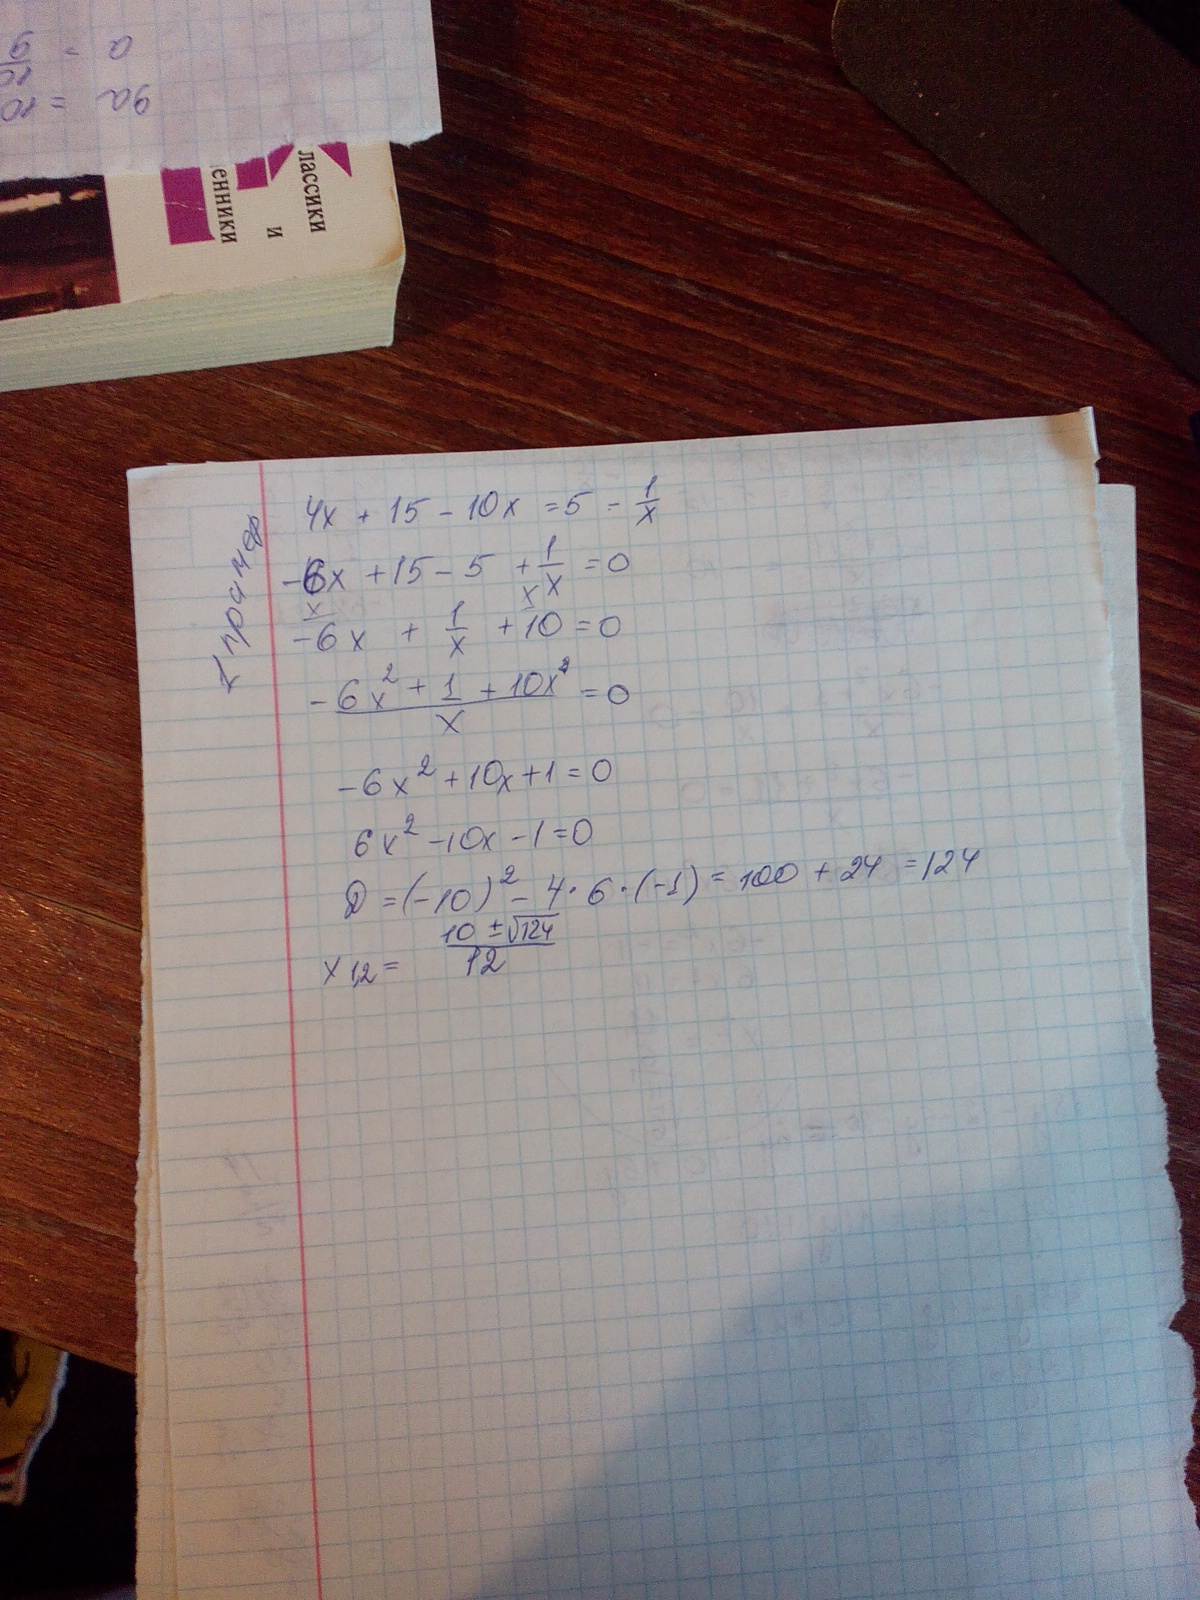 a = 10/9
9a = 10
лассики
и
енники
1 пример
4x + 15 - 10x = 5 - 1/x
-6x + 15 - 5 + 1/x = 0
-6x + 1/x + 10 = 0
-6x² + 1 + 10x² / x = 0
-6x² + 10x + 1 = 0
6x² - 10x - 1 = 0
D = (-10)² - 4 · 6 · (-1) = 100 + 24 = 124
x 1,2 = 10 ± √124 / 12